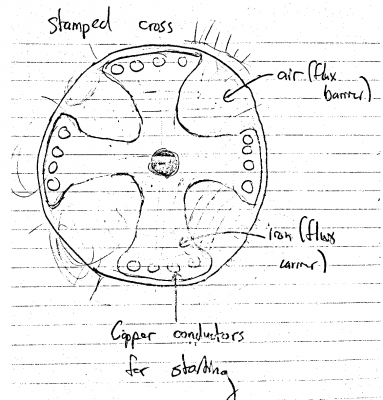 Stamped cross
air (flux
barrier)
iron (flux
carrier)
Copper conductors
for starting